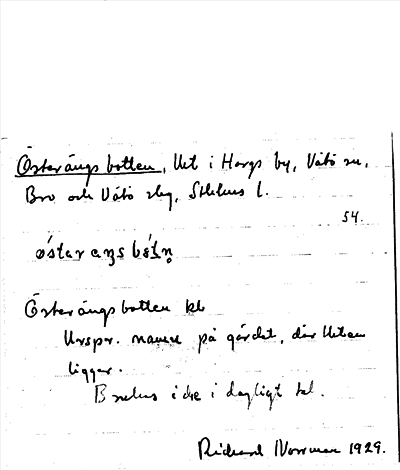 Österängsbotten, Vret i Hargs by, Vätö sn,
Bro och Vätö sklg, Sthlms l.
54.
Österängsbotten kb
Urspr. namn på gärdet, där Vretan
ligger.
Brukas icke i dagligt tal.
Richard Norrman 1929.